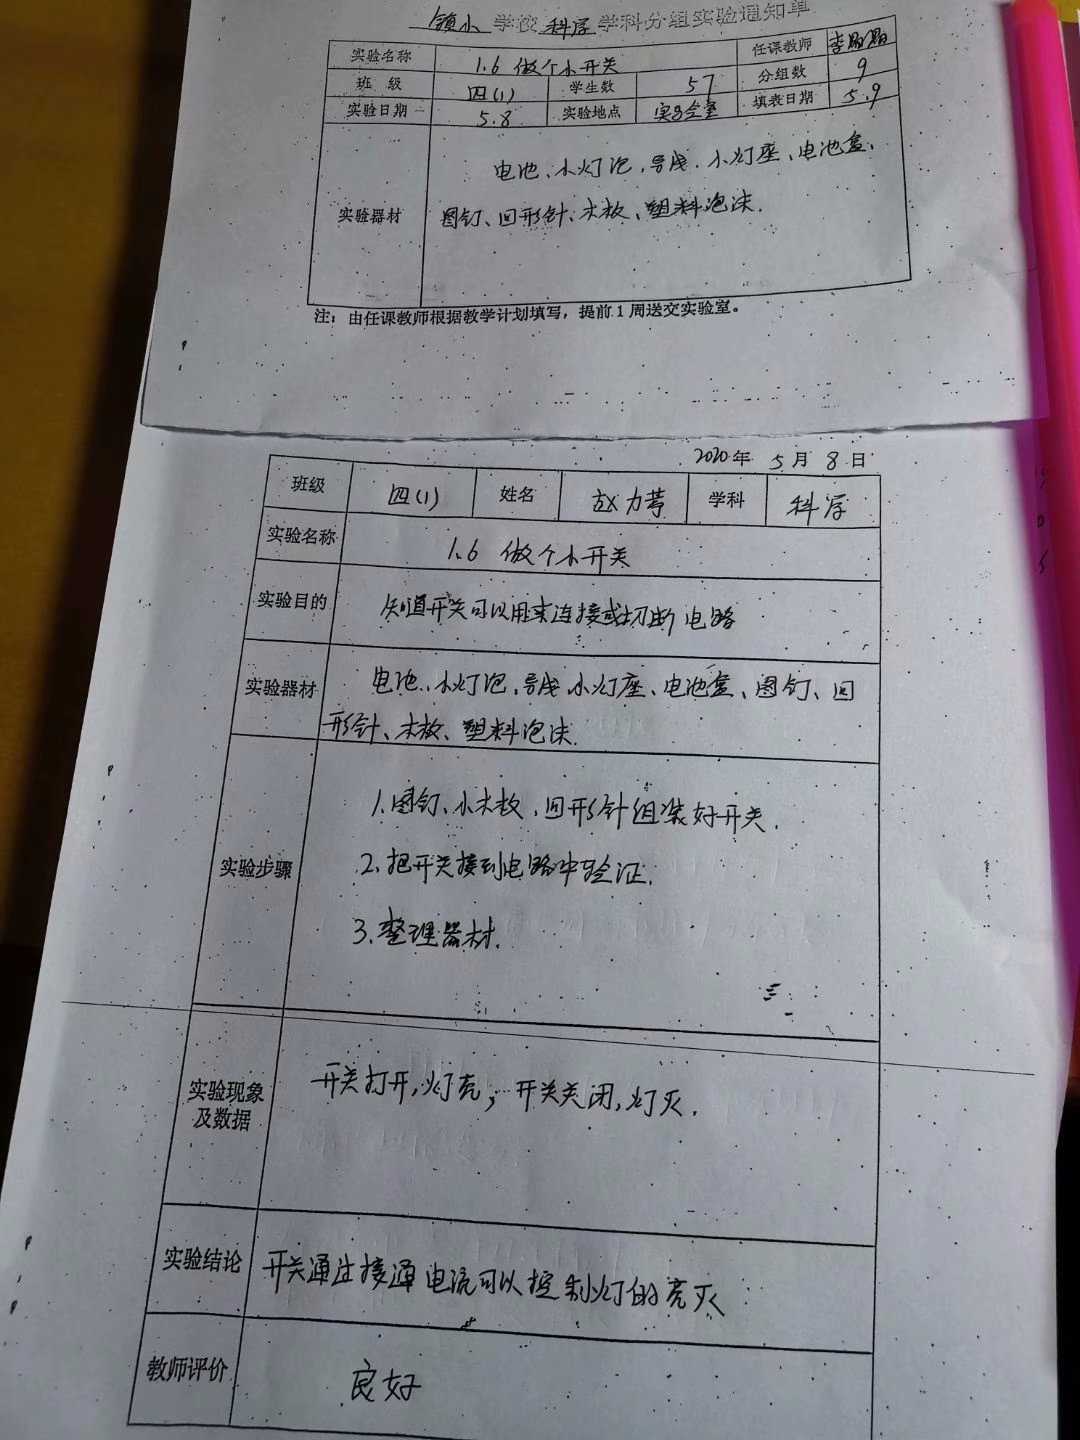 镇小 学校 科学 学科分组实验通知单
实验名称 1.6 做个小开关 任课教师
班 级 四(1) 学生数 57 分组数 9
实验日期 5.8 实验地点 实验室 填表日期 5.9
实验器材 电池、小灯泡、导线、小灯座、电池盒、
图钉、回形针、木板、塑料泡沫.
注：由任课教师根据教学计划填写，提前1周送交实验室。
2020年 5月 8日
班级 四(1) 姓名 学科 科学
实验名称 1.6 做个小开关
实验目的 知道开关可以用来连接或切断电路
实验器材 电池、小灯泡、导线、小灯座、电池盒、图钉、回
形针、木板、塑料泡沫.
实验步骤
1.图钉、小木板、回形针组装好开关.
2.把开关接到电路中验证.
3.整理器材.
实验现象
及数据
开关打开,灯亮；开关关闭,灯灭.
实验结论 开关通过接通电流可以控制灯的亮灭
教师评价 良好